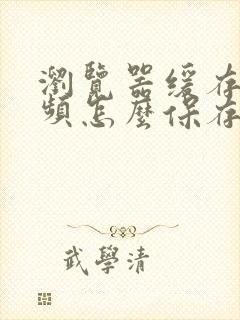 瀏覽器緩存
頻怎麼保存
武學清